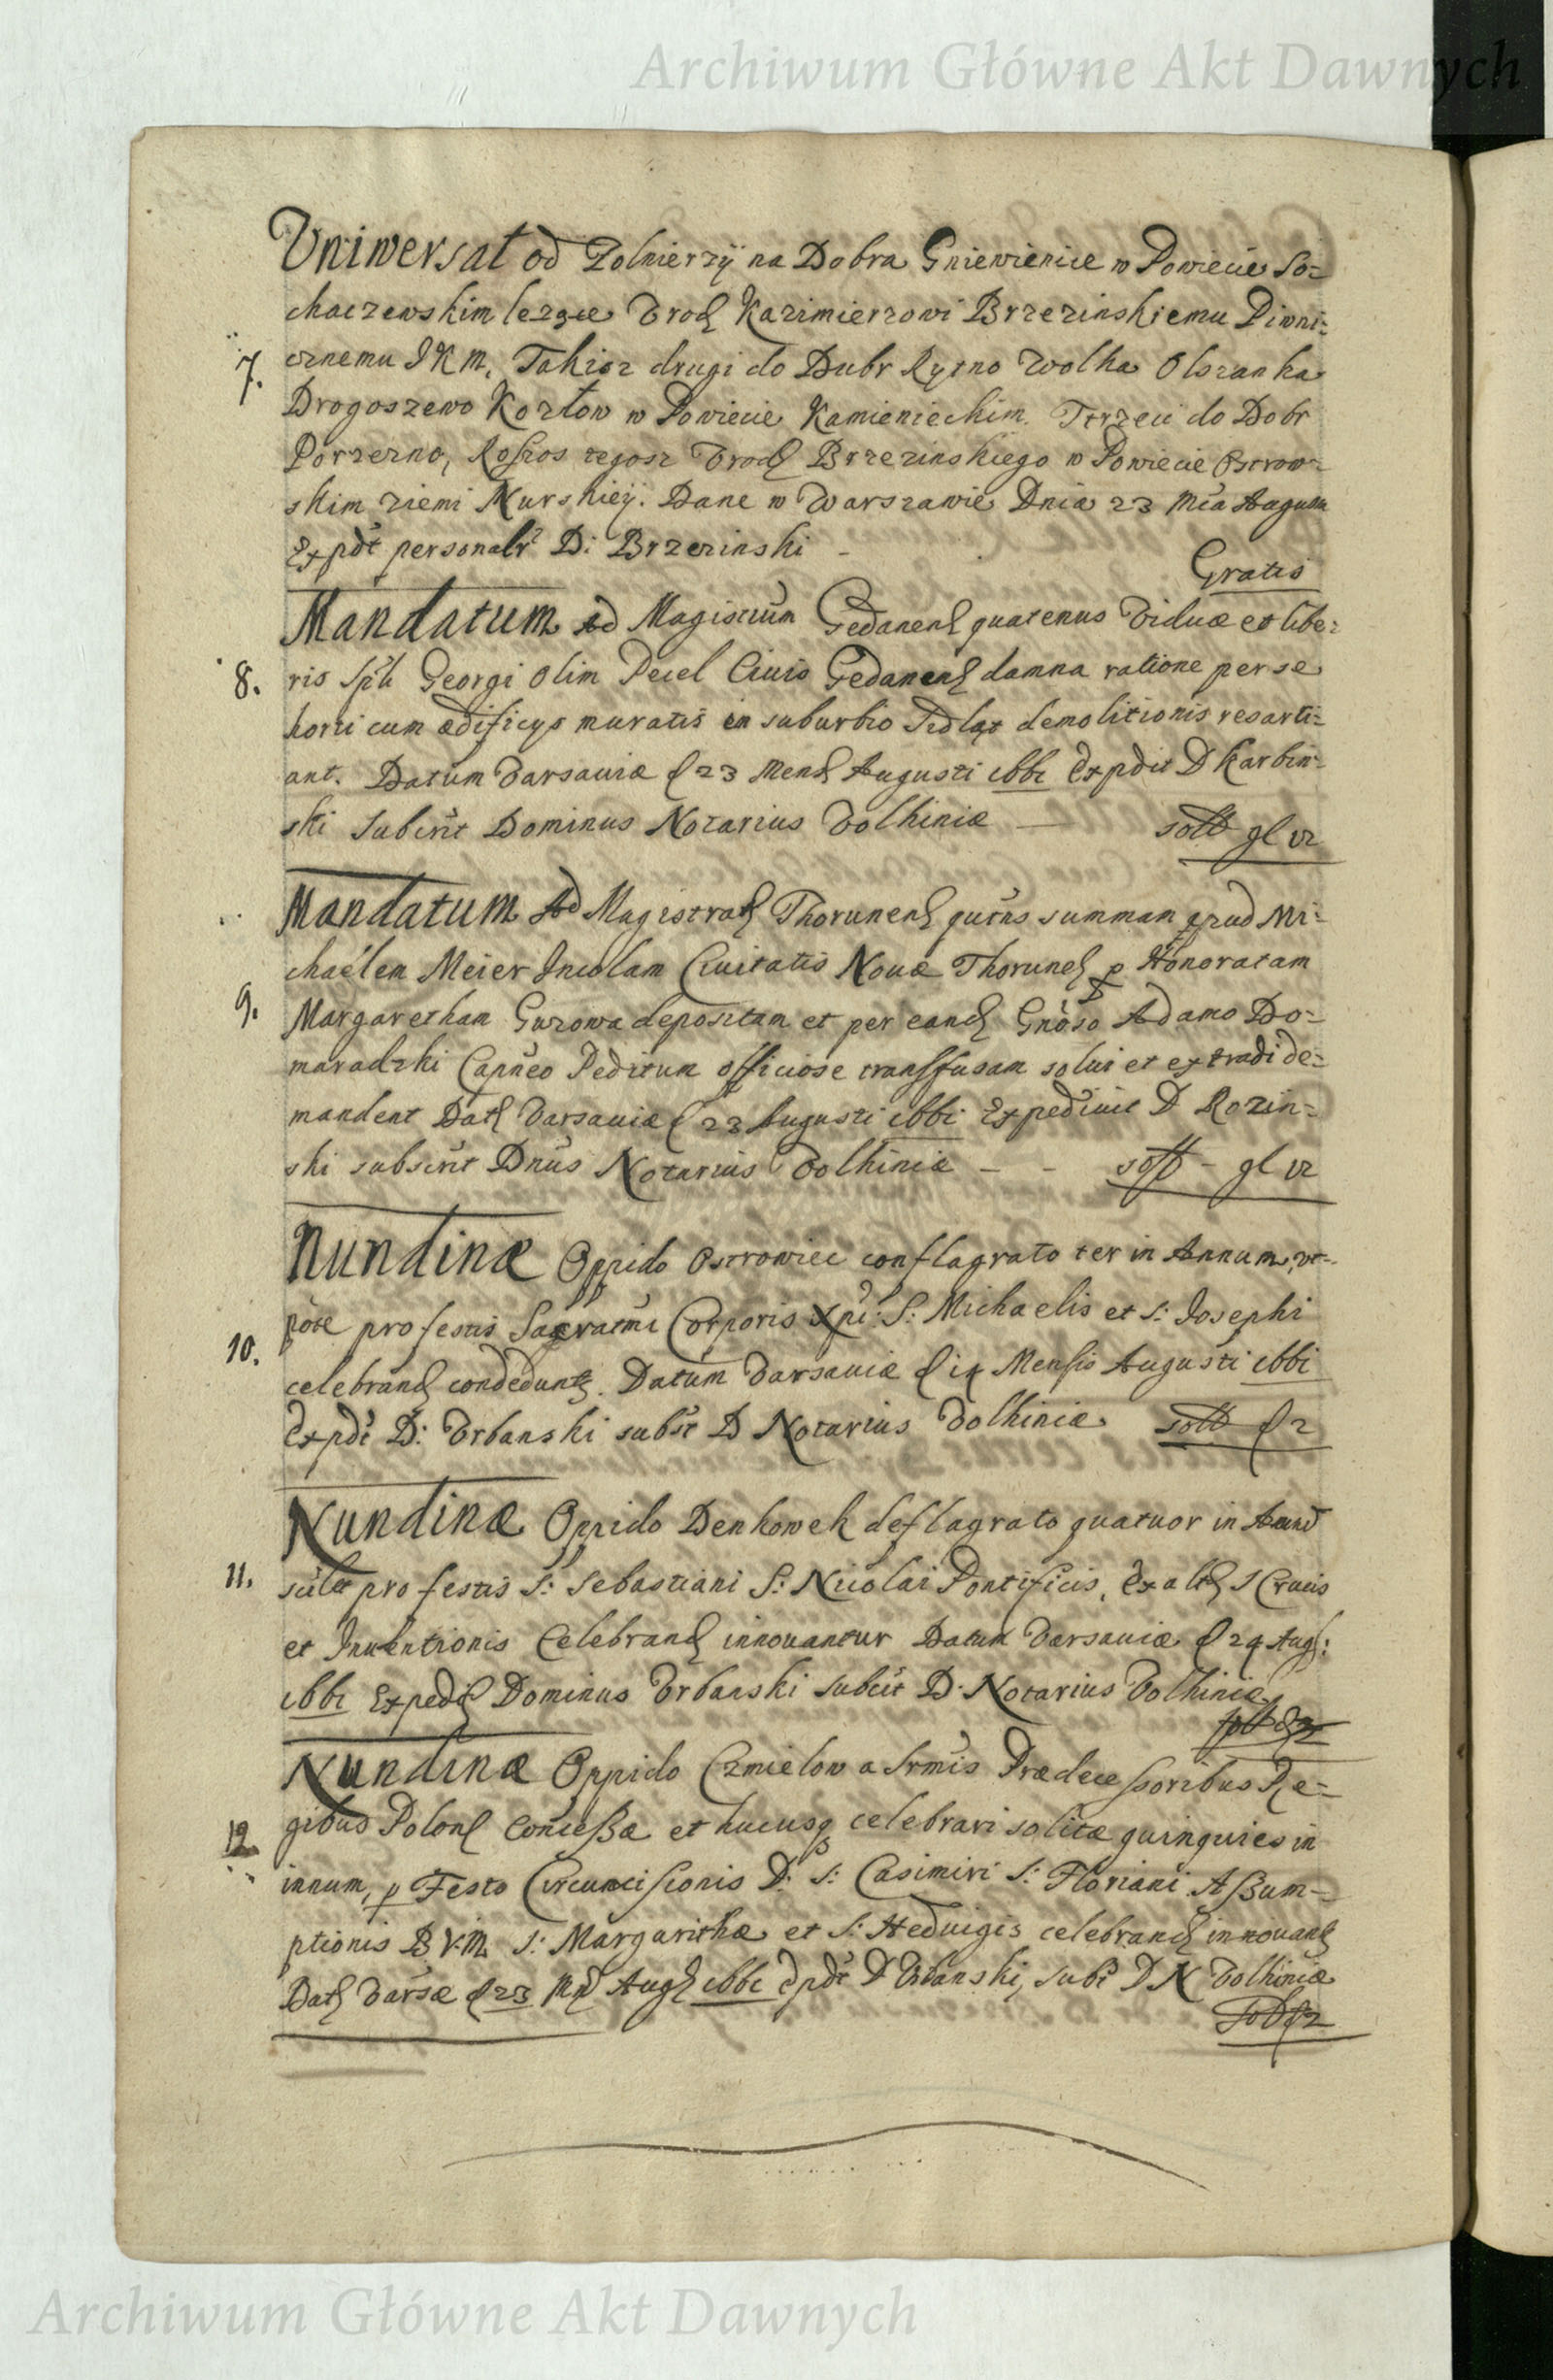 Archiwum Główne Akt Dawnych
Uniwersał od Zolnierzÿ na Dobra Gniewienice w Powiecie So-
chaczewskim lezące Urod Kazimierzowi Brzezinskiemu Piwni-
7. cznemu JKM. Takisz drugi do Dobr Rytno Wolka Olszanka
Drogoszewo Kozłow w Powiecie Kamienieckim. Trzeci do Dobr
Porzezno, Rosszos tegosz Urod Brzezinskiego w Powiecie Ostrow-
skim ziemi Nurskieÿ. Dane w Warszawie Dnia 23 Mca Augusta
Expdt personalr D: Brzezinski -
Gratis
Mandatum Ad Magistrum Gedanens quatenus Viduæ et libe-
8. ris Georgi Olim Pecel Ciuis Gedanens damna ratione per se
horti cum ædificys muratis in suburbio demolitionis resarti-
ant. Datum Varsauiæ d 23 Mens Augusti Expdit D Karbin-
ski Subscrit Dominus Notarius Volhiniæ — solt gl vz
Mandatum Ad Magistrat Thorunens qutns summam apud Mi-
chaélem Meier Incolam Ciuitatis Nouæ Thorunes p Honoratam
9. Margaretham Gurowa depositam et per eand Gnoso Adamo Do-
maradzki Capneo Peditum officiose transfusam solui et extradi de-
mandent Dat Varsauiæ d 23 Augusti Expediuit D Rozin-
ski subscrit Dnus Notarius Volhiniæ - - solt - gl vz
Nundinæ Oppido Ostrowiec conflagrato ter in Annum, ut-
pote pro festis Sacratmi Corporis Xpi: S: Michaelis et S: Josephi
10. celebrand condedunt. Datum Varsauiæ d Mensis Augusti
Expdt D: Urbanski subst D Notarius Volhiniæ solt
Nundinæ Oppido Denkowek deflagrato quatuor in Annu
11. pro festis S: Sebastiani S: Nicolai Pontificis, Exalt S Crucis
et Inuentionis Celebrand innouantur Datum Varsauiæ d 24 Aug:
Exped Dominus Urbanski subscrit D. Notarius Volhiniæ
Nundinæ Oppido Czmielow a Srmis Prædecessoribus Re-
12 gibus Polon Concessæ et hucusq celebrari solitæ quinquies in
innum, p Festo Circumcisionis D: S: Casimiri S: Floriani Assum-
ptionis B V.M. S: Margarithæ et S: Heduigis celebrand innouant
Dat Varsæ d 23 Aug D Urbanski, subt D N Volhiniæ
Archiwum Główne Akt Dawnych